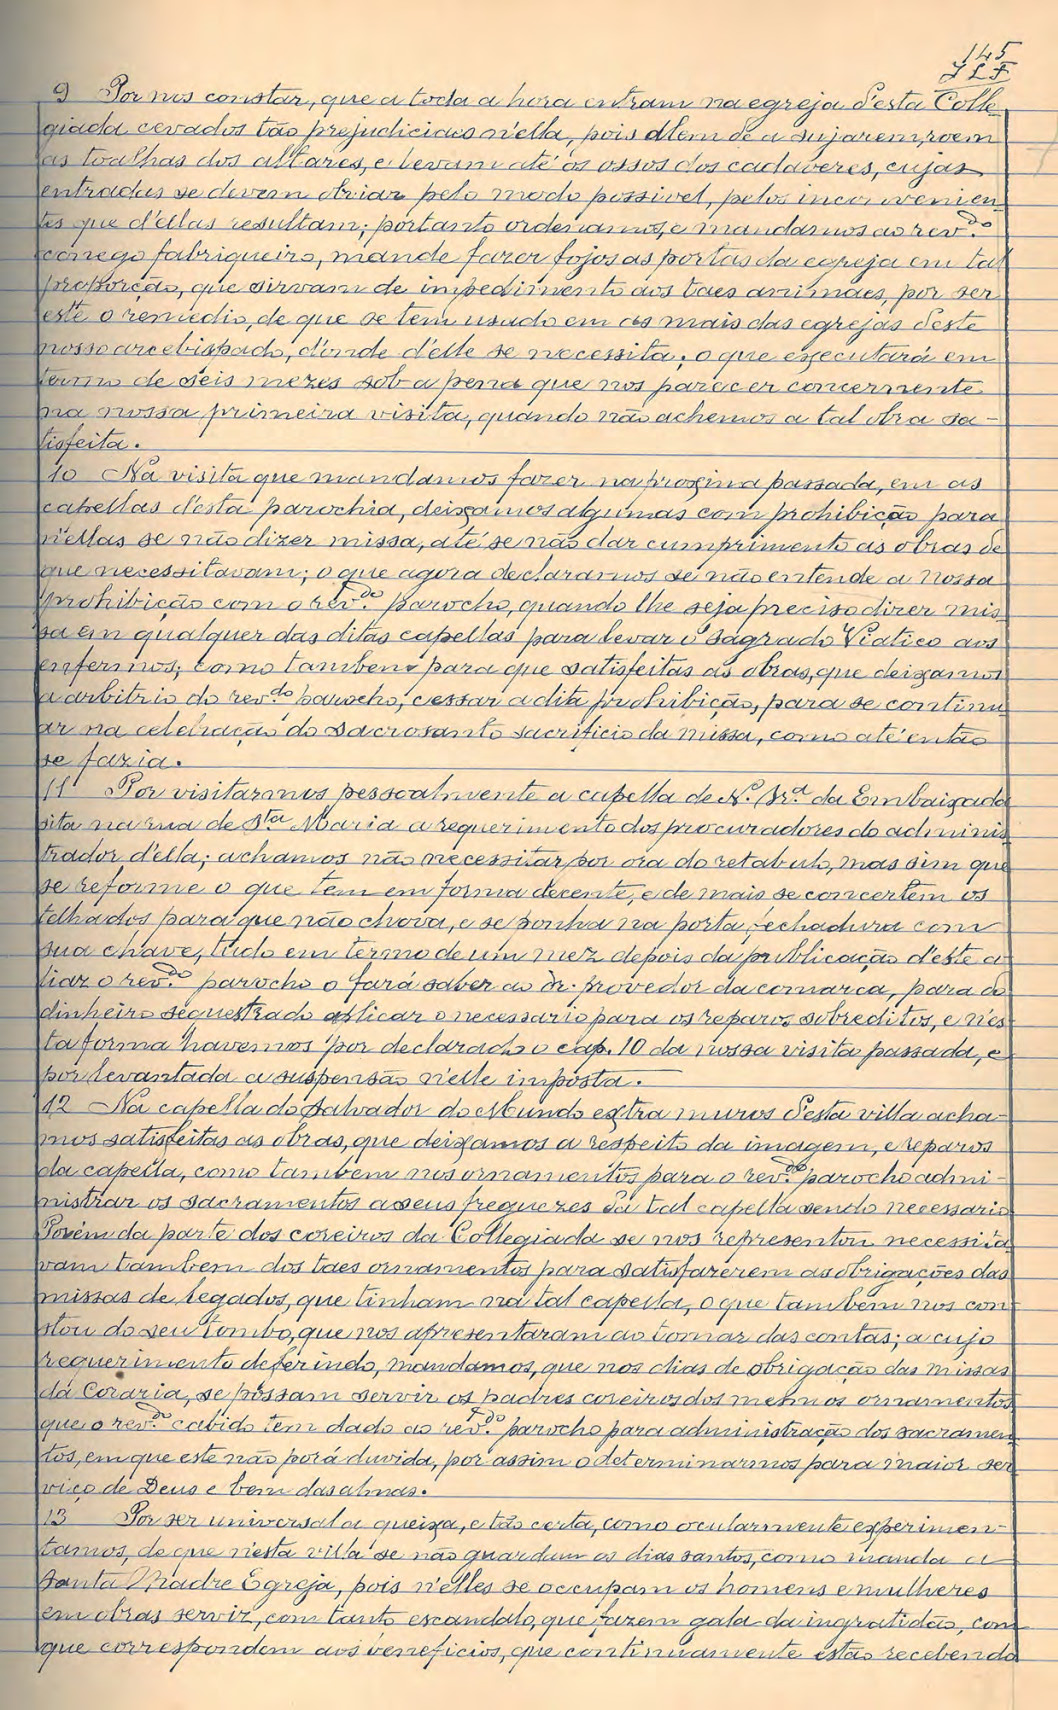 145
J L F
9 Por nos constar, que a toda a hora entram na egreja d'esta Colle
giada cevados tão prejudiciaes n'ella, pois alem de a sujarem, roem
as toalhas dos altares, e levam até os ossos dos cadaveres, cujas
entradas se devem obviar pelo modo possivel, pelos inconvenien
tes que d'ellas resultam; portanto ordenamos, e mandamos ao rev.do
conego fabriqueiro, mande fazer fojos as portas da egreja em tal
proporção, que sirvam de impedimento aos taes animaes, por ser
este o remedio, de que se tem usado em as mais das egrejas d'este
nosso arcebispado, d'onde d'elle se necessita; o que executará em
termo de seis mezes sob a pena que nos parecer concernente
na nossa primeira visita, quando não achemos a tal obra sa-
tisfeita.
10 Na visita que mandamos fazer na proxima passada, em as
capellas d'esta parochia, deixamos algumas com prohibição para
n'ellas se não dizer missa, até se não dar cumprimento as obras de
que necessitavam; o que agora declaramos se não entende a nossa
prohibição com o rev.do parocho, quando lhe seja preciso dizer mis
sa em qualquer das ditas capellas para levar o sagrado Viatico aos
enfermos; como tambem para que satisfeitas as obras, que deixamos
a arbitrio do rev.do parocho, cessar a dita prohibição, para se continu
ar na celebração do sacrosanto sacrificio da missa, como até então
se fazia.
11 Por visitarmos pessoalmente a capella de N. Sr.a da Embaixada
sita na rua de S.ta Maria a requerimento dos procuradores do adminis
trador d'ella; achamos não necessitar por ora do retabulo, mas sim que
se reforme o que tem em forma decente, e de mais se concertem os
telhados para que não chova, e se ponha na porta, fechadura com
sua chave, tudo em termo de um mez depois da publicação d'este a
liaz o rev.do parocho o fará saber ao Dr. provedor da comarca, para do
dinheiro sequestrado aplicar o necessario para os reparos sobreditos, e n'es
ta forma havemos por declarado o cap. 10 da nossa visita passada, e
por levantada a suspensão n'elle imposta.
12 Na capella do Salvador do Mundo extra muros d'esta villa acha-
mos satisfeitas as obras, que deixamos a respeito da imagem, e reparos
da capella, como tambem nos ornamentos para o rev.do parocho admi-
nistrar os sacramentos a seus freguezes da tal capella sendo necessario
Povém da parte dos coreiros da Collegiada se nos representou necessita
vam tambem dos taes ornamentos para satisfazerem as obrigações das
missas de legados, que tinham na tal capella, o que tambem nos con
stou do seu tombo, que nos apresentaram ao tomar das contas; a cujo
requerimento deferindo, mandamos, que nos dias de obrigação das missas
da Coraria, se possam servir os padres coreiros dos mesmos ornamentos
que o rev.do cabido tem dado ao rev.do parocho para administração dos sacramen
tos, em que este não porá duvida, por assim o determinarmos para maior ser
viço de Deus e bem das almas.
13 Por ser universal a queixa, e tão certa, como ocularmente experimen-
tamos, de que n'esta villa se não guardam os dias santos, como manda a
Santa Madre Egreja, pois n'elles se occupam os homens e mulheres
em obras servir, com tanto escandalo, que fazem gala da ingratidão, com
que correspondem aos beneficios, que continuamente estão recebendo